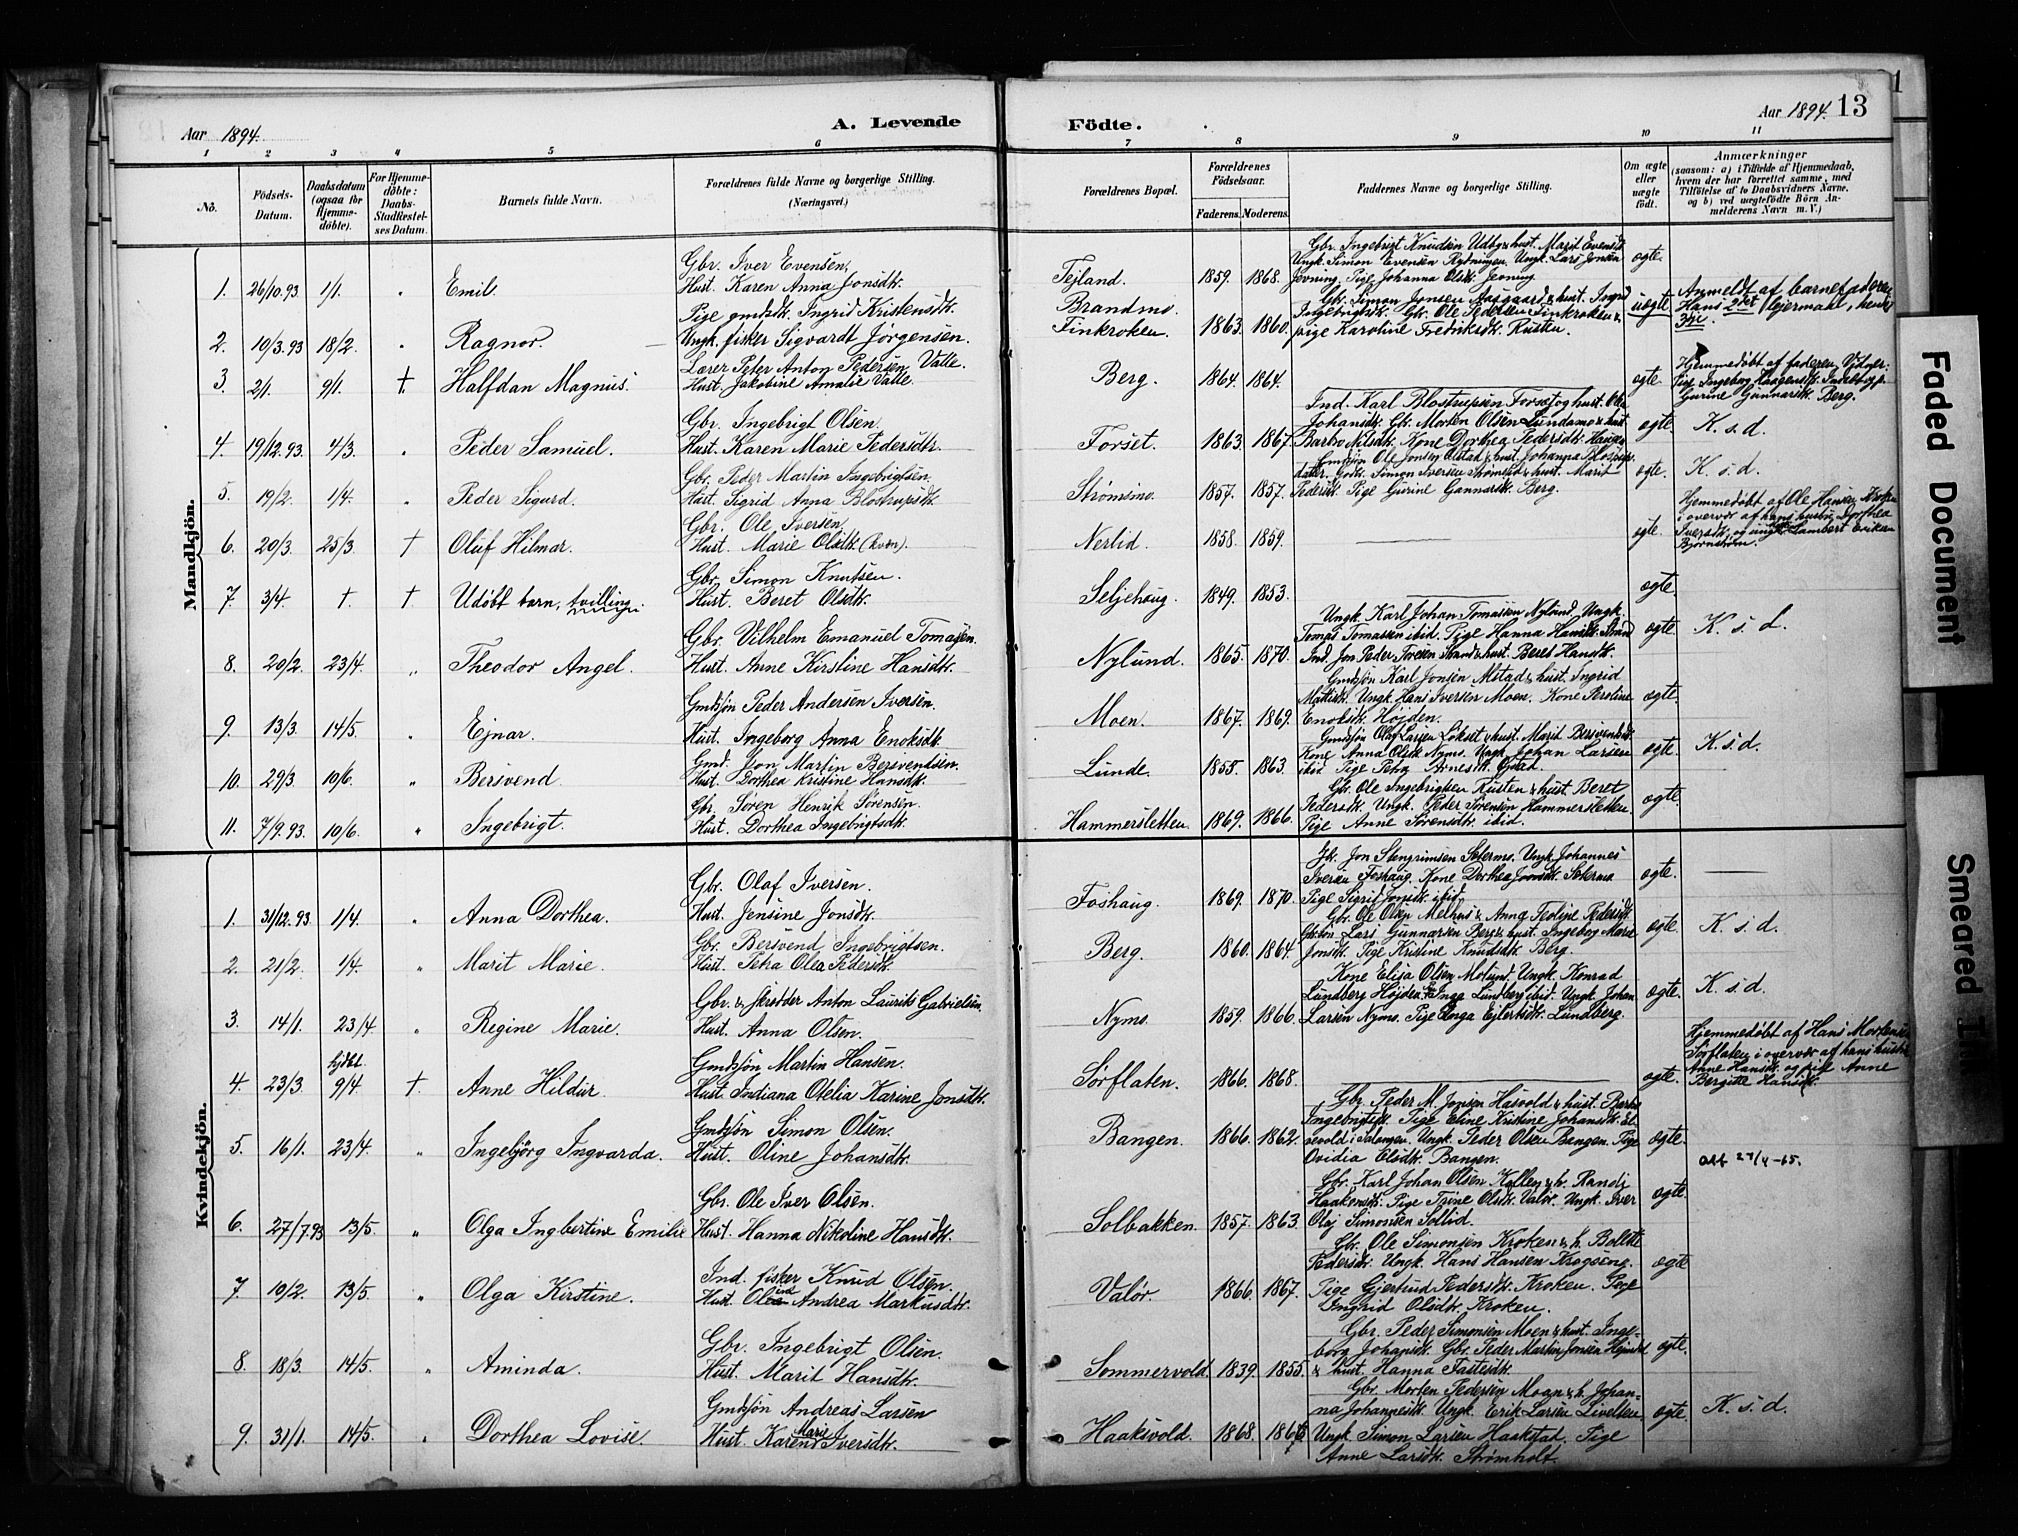 Aar 1894.
A. Levende
Födte.
Aar 1894. 13
1 2 3 4 5 6 7 8 9 10 11
No.
Födsels-Datum.
Daabsdatum (ogsaa for Hjemme-döbte).
For Hjemme-döbte: Daabs-Stadfæstel-ses Datum.
Barnets fulde Navn.
Forældrenes fulde Navne og borgerlige Stilling. (Næringsvei.)
Forældrenes Bopæl.
Forældrenes Födselsaar.
Faderens. Moderens.
Faddernes Navne og borgerlige Stilling.
Om ægte eller uægte födt.
Anmærkninger (saasom: a) i Tilfælde af Hjemmedaab, hvem der har forrettet samme, med Tilföielse af to Daabsvidners Navne, og b) ved uægtefödte Börn An-melderens Navn m. V.)
Mandkjön.
1. 26/10.93 1/1. " Emil. Gbr. Iver Evensen, Hust. Karen Anna Jonsdtr. Fejland. 1859. 1868. Gbr. Ingebrigt Knudsen Udby & hust. Marit Evensdtr. Ungk. Simon Evensen Rydningen. Ungk. Lars Jonsen Jevning. Pige Johanna Olsdtr. Jevning ægte.
2. 10/3.93 18/2. " Ragnor. Pige gmdsdtr. Ingrid Kristensdtr. Ungk. fisker Sigvardt Jørgensen. Brandmo. Finkroken. 1863. 1860. Gbr. Simon Jonsen Aasgaard & hust. Ingrid Ingebrigtsdtr. Gbr. Ole Pedersen Finkroken & pige Karoline Fredriksdtr. Rusten. uægte Anmeldt af barnefaderen Hans 2det lejermaal, hendes 3die.
3. 2/1. 9/1. † Halfdan Magnus. Lærer Peter Anton Pedersen Valle. Hust. Jakobine Amalie Valle. Berg. 1864. 1864. ægte. Hjemmedøbt af faderen. Vidner: Pige Ingeborg Haagensdtr. Gurine Gunnarsdtr. Berg.
4. 19/12.93 4/3. " Peder Samuel. Gbr. Ingebrigt Olsen. Hust. Karen Marie Pedersdtr. Forset. 1863. 1867. Ind. Karl Blostrupsen Forset og hust. Johansdtr. Gbr. Morten Olsen Lundamo & hust Barbro Nilsdtr. Kone Dorthea Pedersdtr. Haugen ægte. K. s. d.
5. 19/2. 1/4. " Peder Sigurd. Gbr. Peder Martin Ingebrigtsen. Hust. Sigrid Anna Blostrupsdtr. Strømsmo. 1857. 1857. Gmdsjøn Ole Jonsen Olstad & hust. Johanna Simon Iversen Strømsli & hust. Marit Pedersdtr. Pige Gurine Gunnarsdtr. Berg. ægte. K. s. d.
6. 20/3. 25/3. † Oluf Hilmar. Gbr. Ole Iversen, Hust. Marie Olsdtr. (kvæn). Nerlid. 1858. 1859. ægte. Hjemmedøbt af Ole Hansen Kroken i overvær af hans hustru Dorthea Iversdtr. og ungk. Lambert Eriksen Bjørnstrøm.
7. 3/4. † † Udøbt barn, tvilling. Gbr. Simon Knutsen. Hust. Beret Olsdtr. Seljehaug. 1849. 1853. ægte
8. 20/2. 23/4. " Theodor Angel. Gbr. Vilhelm Emanuel Tomasen. Hust. Anne Kirstine Hansdtr. Nylund. 1865. 1870. Ungk. Karl Johan Tomassen Nylund. Ungk. Tomas Tomassen ibid. Pige Hanna Hansdtr. Strand Ind. Jon Peder Toresen Strand & hust. Beret Hansdtr. ægte K. s. d.
9. 13/3. 14/5. " Ejnar. Gmdsjøn Peder Andersen Iversen. Hust. Ingeborg Anna Enoksdtr. Moen. 1867. 1869. Gmdsjøn Karl Jonsen Mstad & hust. Ingrid Ungk. Hans Iversen Moen. Kone Seroline Enoksdtr. Højden. ægte.
10. 29/3. 10/6. " Bersvend. Gmd. Jon Martin Bersvendsen. Hust. Dorthea Kristine Hansdtr. Lunde. 1858. 1863. Gmdsjøn Olaf Larsen Løkset & hust. Marit Bersvendsd. Kone Anna Olsdtr. Nyms. Ungk. Johan Larsen ibid Pige Petra Arnesdtr. ægte K. s. d.
11. 7/9.93. 10/6. " Ingebrigt. Gbr. Søren Henrik Sørensen. Hust. Dorthea Ingebrigtsdtr. Hammersletten 1869. 1866. Gbr. Ole Ingebrigtsen Rusten & hust Beret Pedersdtr. Ungk. Peder Sørensen Hammersletten. Pige Anne Sørensdtr. ibid. ægte.
Kvindekjön.
1. 31/12.93 1/4. " Anna Dorthea. Gbr. Olaf Iversen. Hust. Jensine Jonsdtr. Foshaug. 1869. 1870. Gbr. Jon Stengrimsen Setermo. Ungk. Johannes Iversen Foshaug. Kone Dorthea Jonsdtr. Setermo Pige Sigrid Jonsdtr. ibid. ægte.
2. 21/2. 1/4. " Marit Marie. Gbr. Bersvend Ingebrigtsen. Hust. Petra Olea Pedersdtr. Berg. 1860. 1864. Gbr. Ole Olsen Melhus & Anna Feoline Pedersdtr. Lars Gunnarsen Berg & hust. Ingeborg Marie Jonsdtr. Pige Kristine Knudsdtr. Berg. ægte. K. s. d.
3. 14/1. 23/4. " Regine Marie. Gbr. & skrædder Anton Laurits Gabrielsen Hust. Anna Olsen. Nyms. 1859. 1866. Kone Elisa Olsen Molund. Ungk. Konrad Lundberg Højden. Inga Lundberg ibid. Ungk. Johan Larsen Nyms. Pige Inga Ejlertsdtr. Lundberg. ægte. K. s. d.
4. 23/3. hjdbt. 9/4. † Anne Hildur. Gmdsjøn Martin Hansen. Hust. Indiana Otelia Karine Jonsdtr. Sørflaten. 1866. 1868. ægte. Hjemmedøbt af Hans Mortensen Sørflaten i overvær af hans hustru Anne Hansdtr. og pige Anne Bergitte Hansdtr.
5. 16/1. 23/4. " Ingebjörg Ingvarda. Gmdsjön Simon Olsen. Hust. Oline Johansdtr. Bangen. 1866. 1862. Gbr. Peder M. Jonsen Hasvold & hust. Barbro Ingebrigtsdtr. Pige Eline Kristine Johansdtr. El-vevold i Salangen. Ungk. Peder Olsen Bangen. Pige Ovidia Elsdtr. Bangen. ægte. Att 27/4-65.
6. 27/7.93 13/5. " Olga Ingbertine Emilie Gbr. Ole Iver Olsen. Hust. Hanna Nikoline Hansdtr. Solbakken. 1857. 1863. Gbr. Karl Johan Olsen Kollen & h. Randi Haakensdtr. Pige Trine Olsdtr. Valør. Ungk. Iver Olaj Simonsen Sollid. ægte.
7. 10/2. 13/5. " Olga Kirstine. Ind. fisker Knud Olsen. Hust. Andrea Markusdtr. Valør. 1866. 1867. Gbr. Ole Simonsen Kroken & h. Bolette Pedersdtr. Ungk. Hans Hansen Krogseng. Pige Gjertrud Pedersdtr. Kroken. Pige Ingrid Olsdtr. Kroken. ægte
8. 18/3. 14/5. " Aminda. Gbr. Ingebrigt Olsen. Hust. Marit Hansdtr. Sommervold. 1839. 1855. Gbr. Peder Simonsen Moen & hust. Inge-borg Johansdtr. Gbr. Peder Martin Jonsen & hust. Hanna Fastesdtr. ægte.
9. 31/1. 14/5. " Dorthea Lovise. Gmdsjön Andreas Larsen Hust. Karen Marie Iversdtr. Haaksvold. 1868. 1866 Gbr. Morten Pedersen Moan & h. Johan-na Johannesdtr. Ungk. Erik Larsen Livelten, Ungk. Simon Larsen Haakstad. Pige Anne Larsdtr. Strømholt. ægte. K. s. d.
Faded Document
Smeared Ink